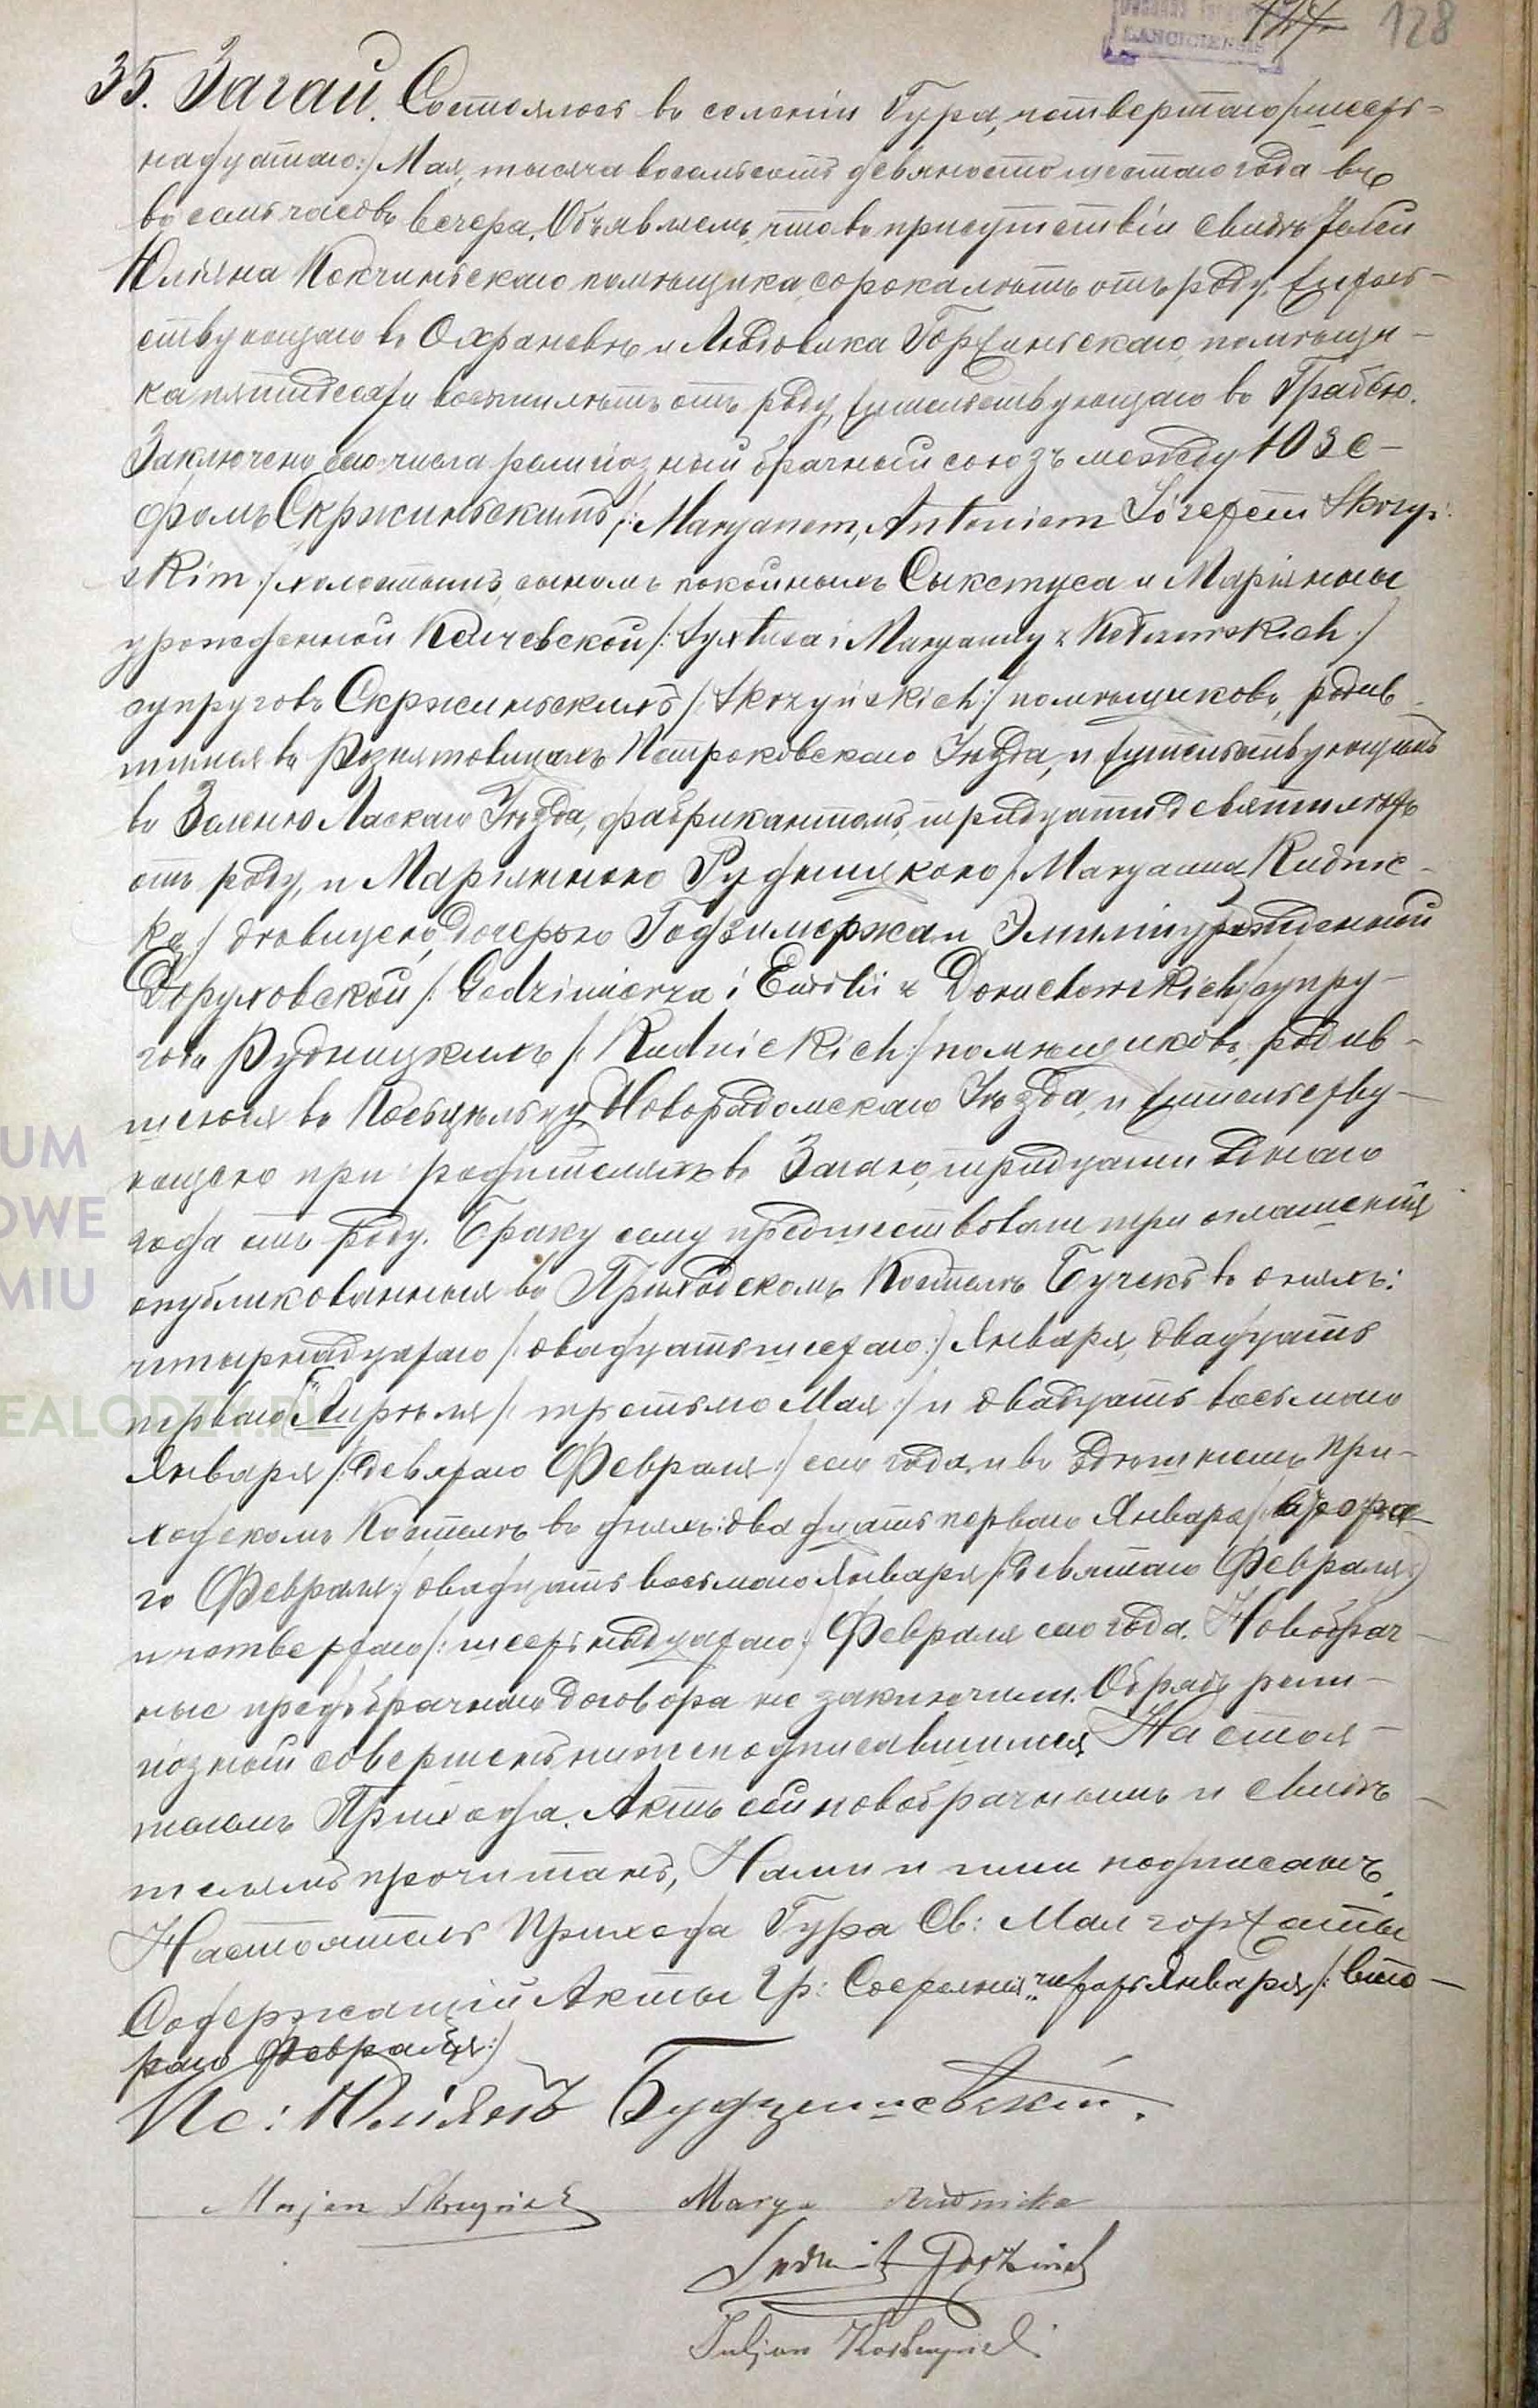 128
35. Загаи. Состоялось въ селеніи Гура, четвертаго /:шест-
надцатаго:/ Мая, тысяча восемьсотъ девяносто шестаго года въ
восемь часовъ вечера. Объявляемъ, что въ присутствіи свидѣтелей
Юліяна помѣщика, сорока лѣтъ отъ роду, жител-
ствующаго въ и Людовика Горжиньскаго, помѣщи-
ка пятидесяти восьми лѣтъ отъ роду, жительствующаго въ
Заключенъ сего числа религіозный брачный союзъ между Юзе-
фомъ Скржиньскимъ /:Maryanem, Antonim Józefem Skrzyń-
skim:/ холостымъ, сыномъ покойныхъ Сыкстуса и Маріянны
урожденной /:Syxtusa i Maryanny z
супруговъ Скржиньскихъ /:Skrzyńskich:/ помѣщиковъ, родив-
шимся въ Петроковскаго Уѣзда, и жительствующимъ
въ Ласкаго Уѣзда, фабрикантомъ, тридцати девяти лѣтъ
отъ роду, и Маріянною Рудницкою /:Maryanną Rudnic-
ką:/ дѣвицею, дочерью Годзимержа и Эмиліи урожденной
Доруховской /:Godzimierza i Emilii z Doruchowskich:/ супру-
говъ Рудницкихъ /:Rudnickich:/ помѣщиковъ, родив-
шеюся въ Новорадомскаго Уѣзда, и жительству-
ющею при родителяхъ въ тридцати одного
года отъ роду. Браку сему предшествовали три оглашенія
опубликованныя въ Приходскомъ Костелѣ Бучекъ въ дняхъ:
четырнадцатаго /:двадцать шестаго:/ Января, двадцать
перваго Апрѣля /:третьяго Мая:/ и двадцать восьмаго
Января /:девятаго Февраля:/ сего года, и въ здѣшнемъ При-
ходскомъ Костелѣ въ дняхъ: двадцать перваго Января /:втора-
го Февраля:/ двадцать восьмаго Января /:девятаго Февраля:/
и четвертаго /:шестнадцатаго:/ Февраля сего года. Новобрач-
ные предбрачнаго договора не заключили. Обрядъ рели-
гіозный совершенъ нижеподписавшимся Настоя-
телемъ Прихода. Актъ сей новобрачнымъ и свидѣ-
телямъ прочитанъ, Нами и ими подписанъ.
Настоятель Прихода Гура Св: Малгоржаты
Содержащій Акты Гр: Состоянія Января /:вто-
раго Февраля:/
Кс: Юліянъ
Marjan Skrzyński Marya Rudnicka
Ludwik Gorżiński
Juljan